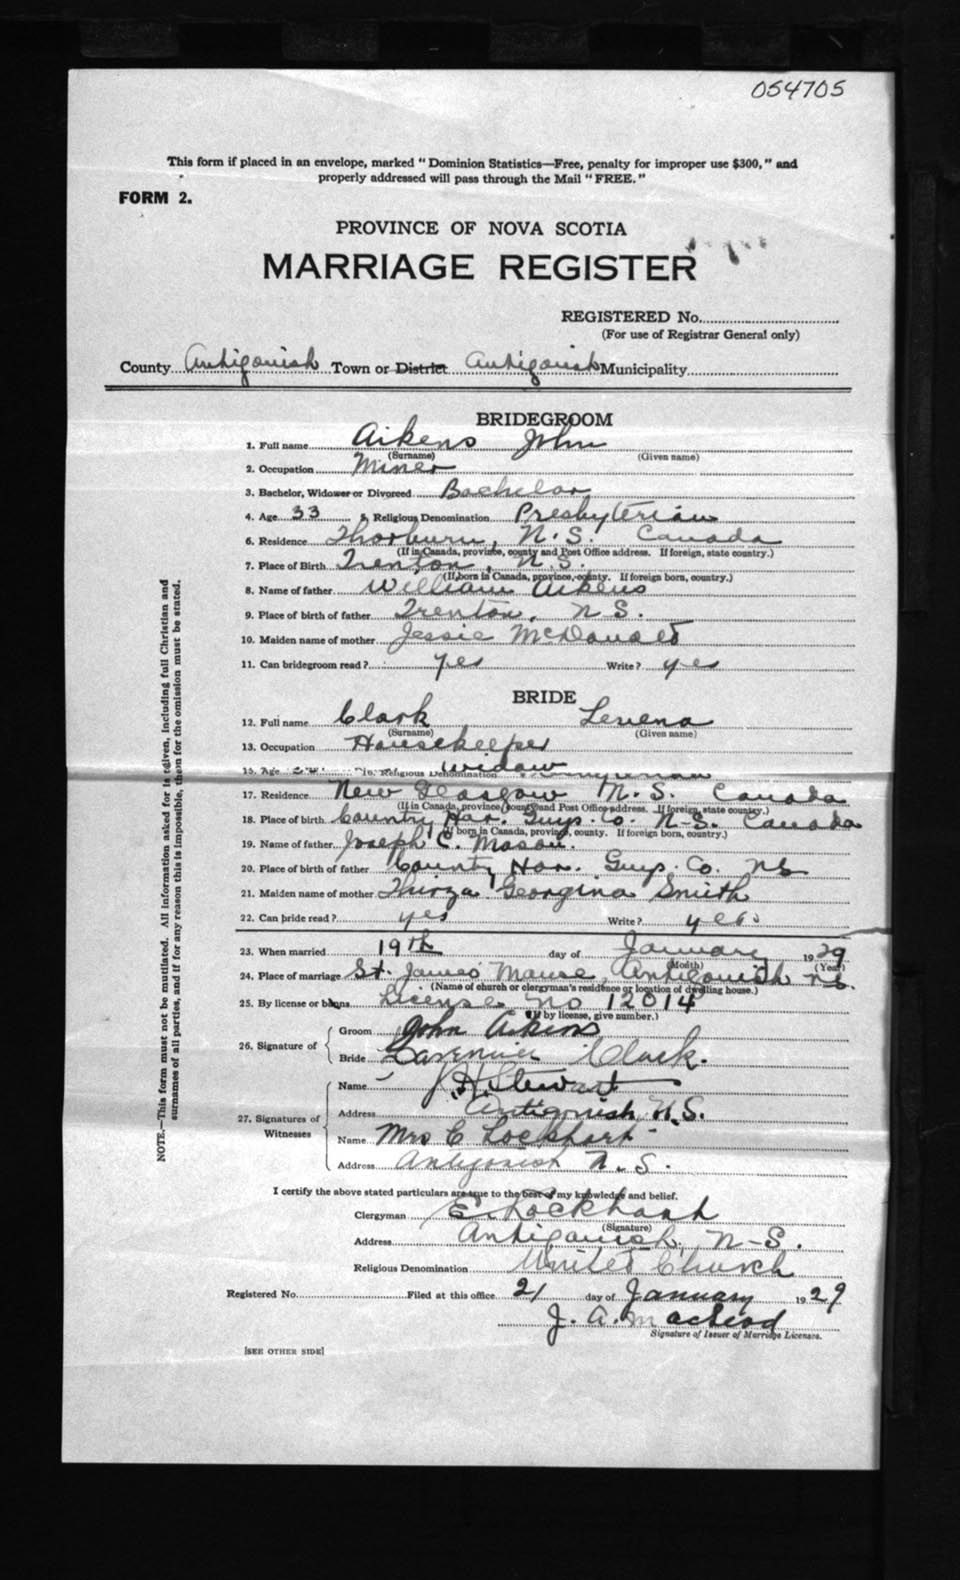 054705
This form if placed in an envelope, marked "Dominion Statistics—Free, penalty for improper use $300," and
properly addressed will pass through the Mail "FREE."
FORM 2.
PROVINCE OF NOVA SCOTIA
MARRIAGE REGISTER
REGISTERED No.
(For use of Registrar General only)
County Antigonish Town or District Antigonish Municipality
BRIDEGROOM
1. Full name Aikens John
(Surname) (Given name)
2. Occupation Miner
3. Bachelor, Widower or Divorced Bachelor
4. Age 33 5. Religious Denomination Presbyterian
6. Residence Thorburn, N.S. Canada
(If in Canada, province, county and Post Office address. If foreign, state country.)
7. Place of Birth Trenton, N.S.
(If born in Canada, province, county. If foreign born, country.)
8. Name of father William Aikens
9. Place of birth of father Trenton, N S.
10. Maiden name of mother Jessie McDonald
11. Can bridegroom read? yes Write? yes
BRIDE
12. Full name Clark Levena
(Surname) (Given name)
13. Occupation Housekeeper
Widow
15. Age 16. Religious Denomination
17. Residence New Glasgow N.S. Canada
(If in Canada, province, county and Post Office address. If foreign, state country.)
18. Place of birth Country Har. Guys. Co. N-S. Canada
(If born in Canada, province, county. If foreign born, country.)
19. Name of father Joseph C. Mason.
20. Place of birth of father Country Har. Guys. Co. NS
21. Maiden name of mother Thirza Georgina Smith
22. Can bride read? yes Write? yes
23. When married 19th day of January 1929
(Month) (Year)
24. Place of marriage St. James' Manse, Antigonish N.S.
(Name of church or clergyman's residence or location of dwelling house.)
25. By license or banns License No 12014
(If by license, give number.)
26. Signature of
Groom John Aikens
Bride Lavenia Clark.
27. Signatures of Witnesses
Name J H Stewart
Address Antigonish N.S.
Name Mrs C Lockhart
Address Antigonish N.S.
I certify the above stated particulars are true to the best of my knowledge and belief.
Clergyman C. Lockhart
(Signature)
Address Antigonish, N-S.
Religious Denomination United Church
Registered No. Filed at this office 21 day of January 1929
J. A. Macleod
Signature of Issuer of Marriage Licenses.
[SEE OTHER SIDE]
NOTE.—This form must not be mutilated. All information asked for is given, including full Christian and
surnames of all parties, and if for any reason this is impossible, them for the omission must be stated.